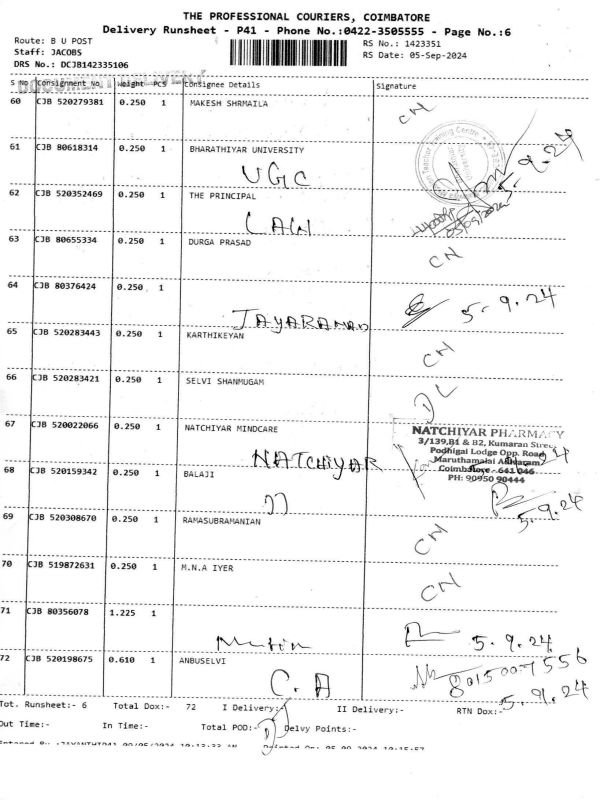 THE PROFESSIONAL COURIERS, COIMBATORE
Delivery Runsheet - P41 - Phone No.:0422-3505555 - Page No.:6
Route: B U POST
RS No.: 1423351
Staff: JACOBS
RS Date: 05-Sep-2024
DRS No.: DCJB142335106
S No Consignment No Weight PCS Consignee Details Signature
60 CJB 520279381 0.250 1 MAKESH SHRMAILA CN
61 CJB 80618314 0.250 1 BHARATHIYAR UNIVERSITY 5-9-24
UGC
62 CJB 520352469 0.250 1 THE PRINCIPAL
LAW
63 CJB 80655334 0.250 1 DURGA PRASAD CN
64 CJB 80376424 0.250 1 5-9.24
JAYARAMAN
65 CJB 520283443 0.250 1 KARTHIKEYAN CN
66 CJB 520283421 0.250 1 SELVI SHANMUGAM DL
67 CJB 520022066 0.250 1 NATCHIYAR MINDCARE
NATCHIYAR PHARMACY
3/139,B1 & B2, Kumaran Street
Podhigai Lodge Opp. Road
Maruthamalai Adivaram
Coimbatore - 641 046
PH: 90950 90444
NATCHIYAR
68 CJB 520159342 0.250 1 BALAJI
5.9.24
69 CJB 520308670 0.250 1 RAMASUBRAMANIAN CN
70 CJB 519872631 0.250 1 M.N.A IYER CN
71 CJB 80356078 1.225 1
5.9.24
72 CJB 520198675 0.610 1 ANBUSELVI 8015007556
C.A 5.9.24
Tot. Runsheet:- 6 Total Dox:- 72 I Delivery:- II Delivery:- RTN Dox:-
Out Time:- In Time:- Total POD:- Delvy Points:-